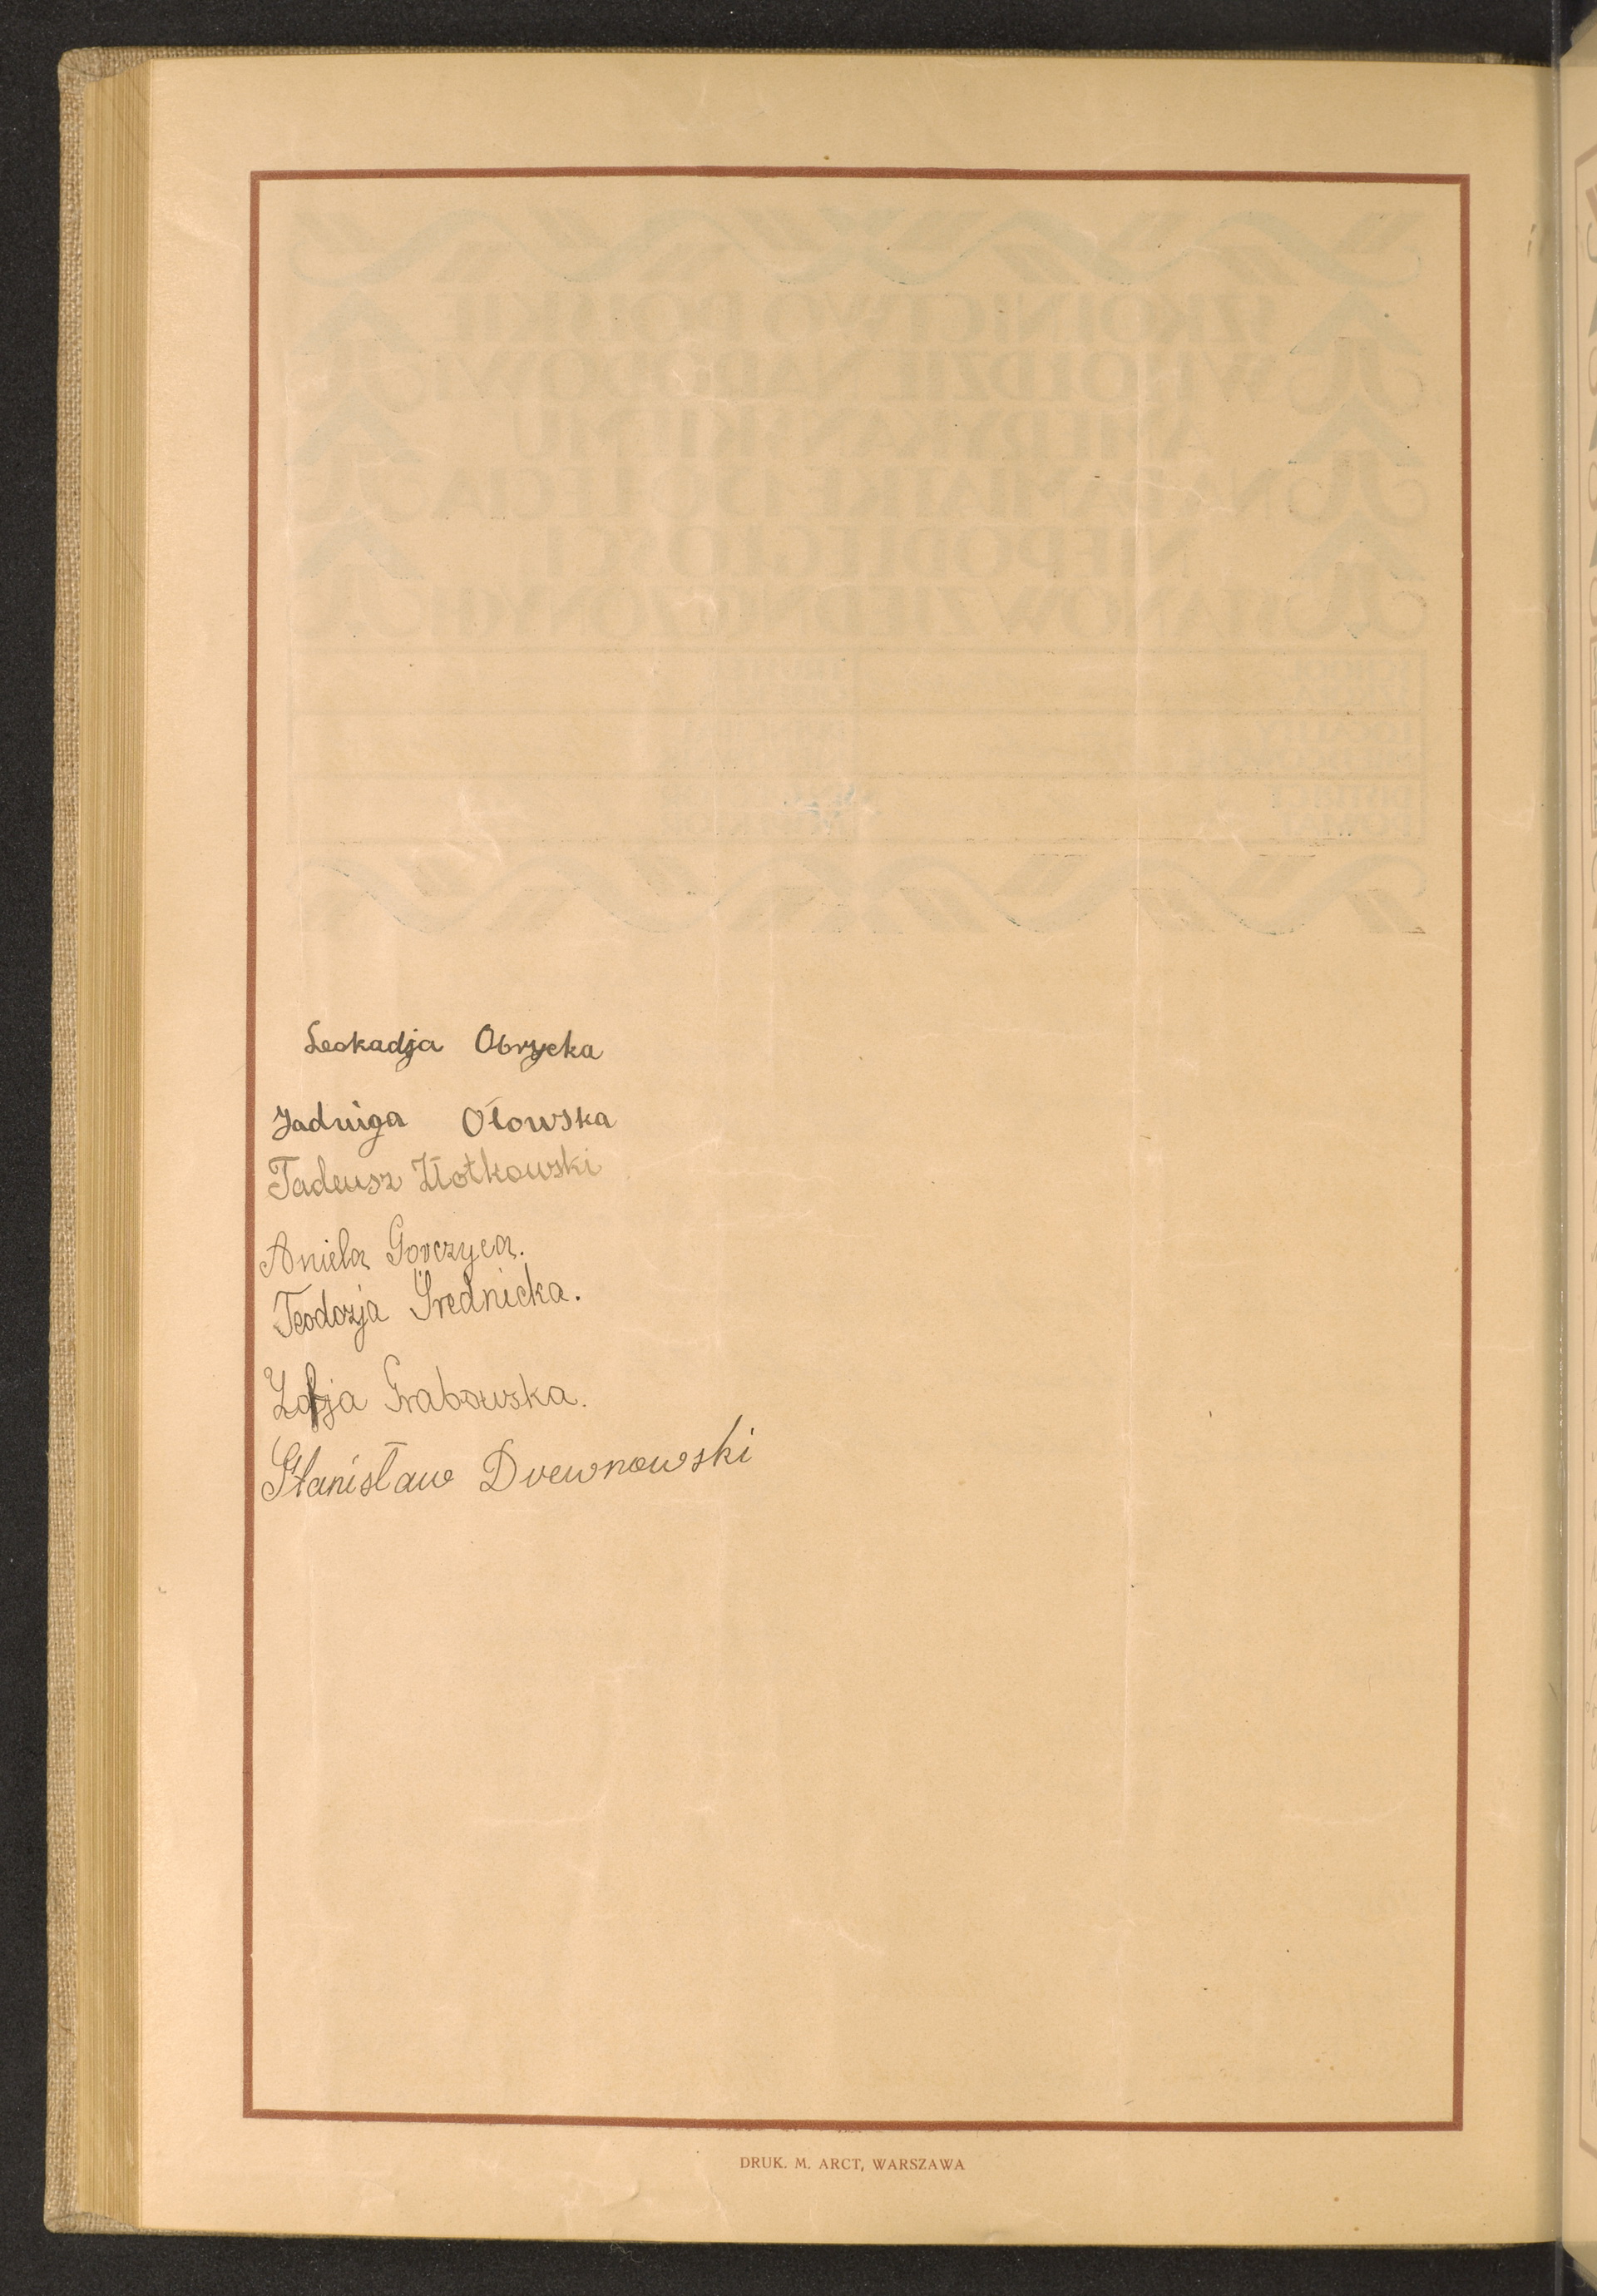 Leokadja Obrycka
Jadwiga Ołowska
Tadeusz Złotkowski
Aniela Gorczyca.
Teodozja Średnicka.
Zofja Grabowska.
Stanisław Drewnowski
DRUK. M. ARCT, WARSZAWA